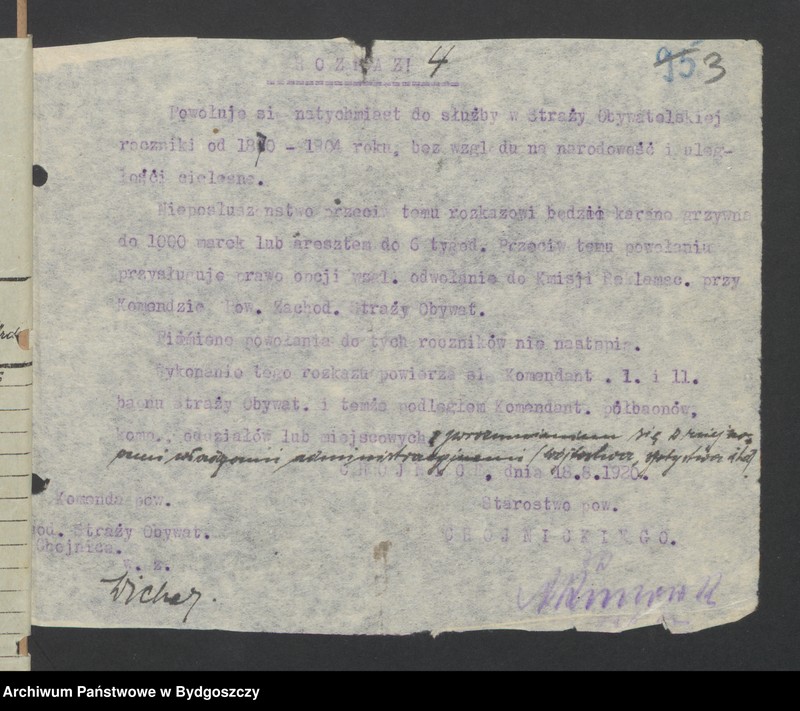 ROZKAZ! 4
953
Powołuje się natychmiast do służby w Straży Obywatelskiej
roczniki od 1870 - 1904 roku, bez względu na narodowość i uleg-
łości cielesne.
Nieposłuszeństwo przeciw temu rozkazowi będzie karane grzywną
do 1000 marek lub aresztem do 6 tygod. Przeciw temu powołaniu
przysługuje prawo opcji wzgl. odwołanie do Kmisji Reklamac. przy
Komendzie pow. Zachod. Straży Obywat.
Piśmienne powołania do tych roczników nie nastąpią.
Wykonanie tego rozkazu powierza się Komendant. 1. i 11.
baonu Straży Obywat. i temże podległem Komendant. półbaonów,
komp., oddziałów lub miejscowych z porozumieniem się z miejsco-
wemi władzami administracyjnemi (wójtostwa, sołystwa itd)
CHOJNICE, dnia 18.8.1920.
Komenda pow. Starostwo pow.
hod. Straży Obywat. CHOJNICKIEGO.
Chojnice.
w. z.
Wicher.